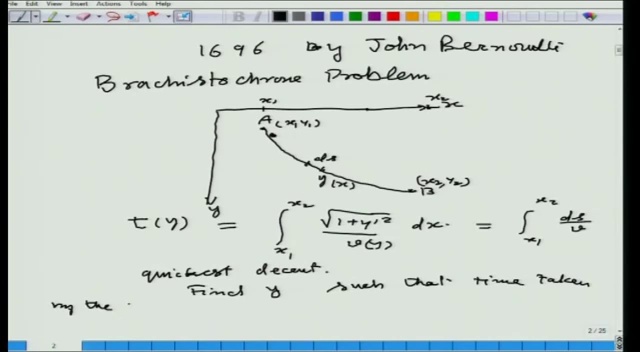 Edit View Insert Actions Tools Help
1696 By John Bernoulli
Brachistochrone Problem
x₁ x₂ x
A (x₁, y₁)
ds
y(x)
(x₂, y₂)
B
y
t(y) = ∫_{x₁}^{x₂} √(1+y'²) / v(y) dx. = ∫_{x₁}^{x₂} ds/v
quickest decent.
Find y such that time taken
the
2 / 25
2